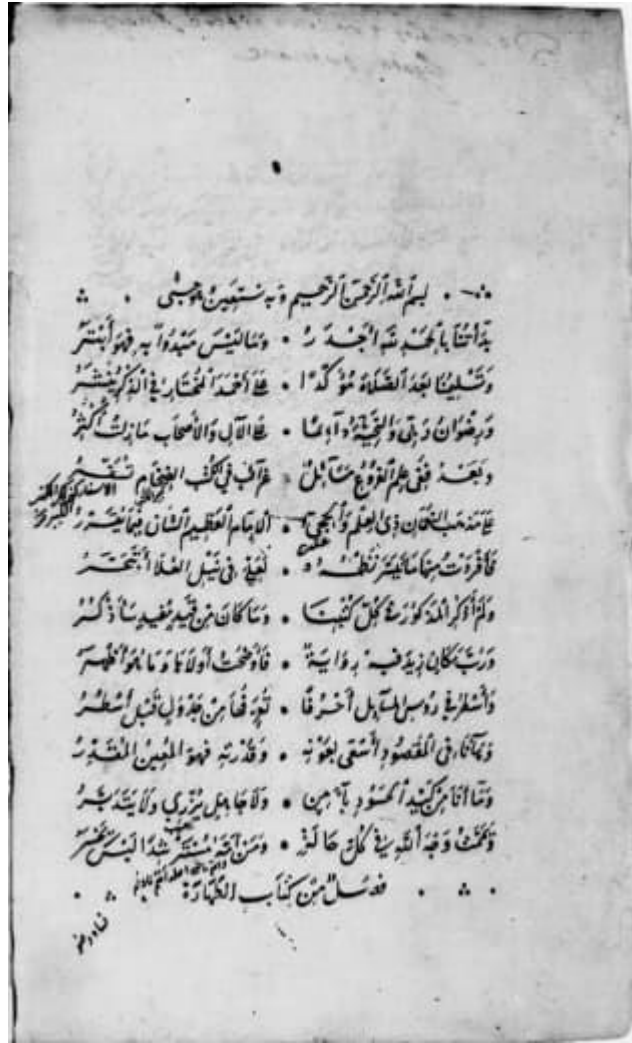 بسم الله الرحمن الرحيم وبه نستعين
بدأتنا بالحمد لله أجدر • وما ليس مبدوا به فهو أبتر
وتسليمنا بعد الصلاة مؤكدا • على أحمد المختار في الذكر ينشر
ورضوان ربي والتحية دائما • على الآل والأصحاب ما زلت أكثر
وبعد ففي علم الفروع مسائل • غرائب في الكتب الضخام تسفر
على مذهب النعمان ذي العلم والحجى • الإمام العظيم الشان فيما يقرر
فأفردت منها ما تيسر نظمه • لعلي في نيل العلا أتبختر
ولم أذكر المذكور في كل كتبنا • وما كان من قيد مفيد سأذكر
ورب مكان زيد فيه رواية • فأوضحت أولاها وما هو أظهر
وأسطر في روس المسائل أحرفا • تعرفها من جدول قبل أسطر
وها أنا في المقصود أسعى بعونه • وقدرته فهو المعين المقدر
وما أنا من كيد الحسود بآمن • ولا جاهل يزري ولا يتدبر
وقمت وجه الله في كل حالة • ومن
فصل من كتاب الطهارة